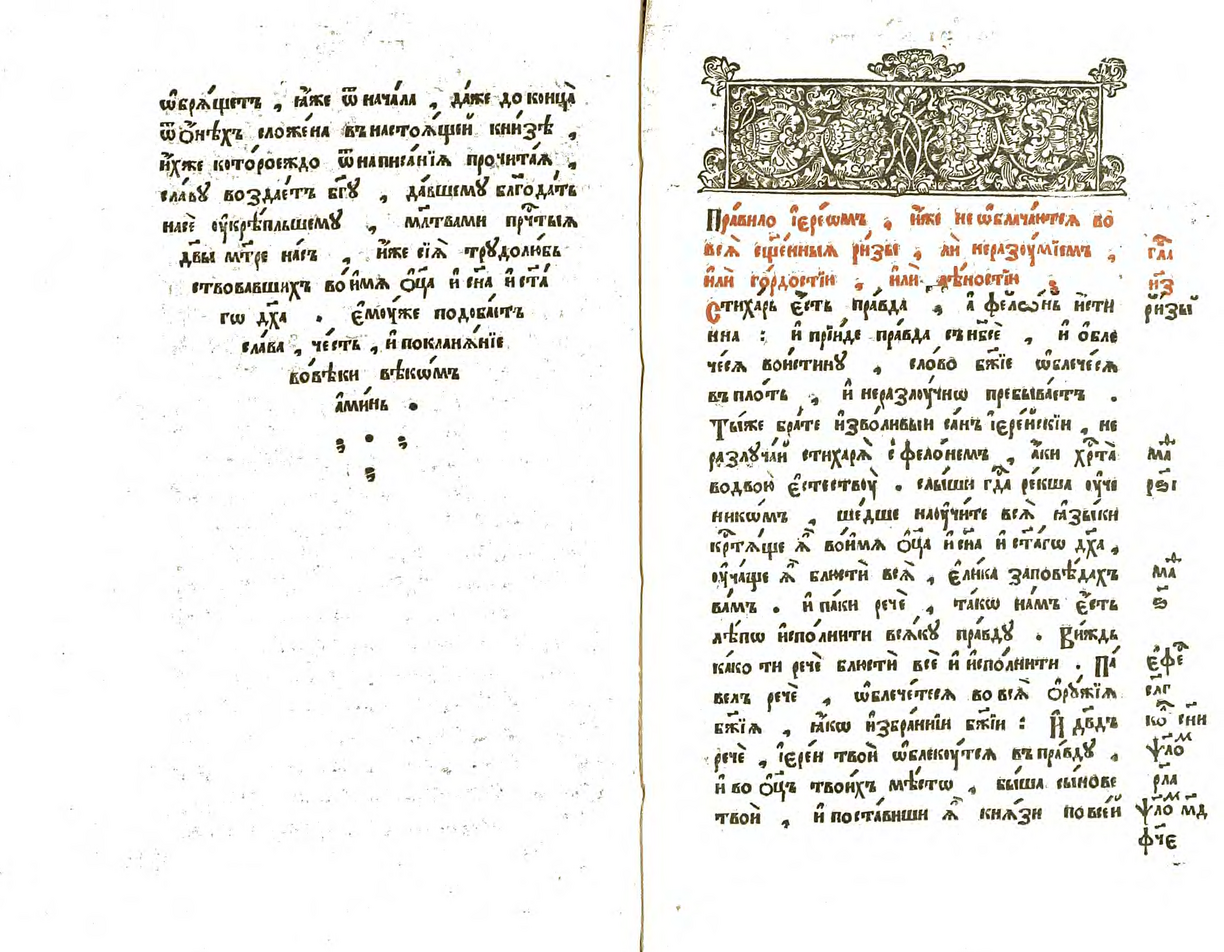 ѡ҆брѧ́щетъ , ꙗ҆́же ѿ нача́ла , да́же до конца̀
ѿ ѻ҆́нѣхъ сложе́на въ настоѧ́щей кни́зѣ ,
и҆́хже кото́роеждо ѿ написа́нїѧ прочита́ѧ ,
сла́вꙋ воздае́тъ бг҃ꙋ , да́вшемꙋ благода́ть
насѐ ᲂу҆крѣ́пльшемꙋ , мл҃твами пречⷭ҇тыѧ
дв҃ы мт҃ре на́съ , и҆́же сїѧ̀ трꙋдолю́бь
ствовавшихъ во и҆́мѧ ѻ҆ц҃а̀ и҆ сн҃а и҆ ст҃а́
гѡ дх҃а . є҆мꙋ́же подоба́етъ
сла́ва , че́сть , и҆ покланѧ́нїе
во вѣ́ки вѣкѡ́мъ
а҆ми́нь .
Пра́вило і҆ере́ѡмъ , и҆́же не ѡ҆блача́ютсѧ во
всѧ̀ сщ҃е́нныѧ ри́зы , лѝ неразꙋ́мїемъ ,
и҆лѝ го́рдостїи , и҆лѝ лѣ́ностїи
гла
из
Стиха́рь є҆́сть пра́вда , а҆ фелѡ́нь и҆́сти
ри́зы
нна : и҆ прїи́де пра́вда съ нб҃сѐ , и҆ ѡ҆бле
че́сѧ вои́стинꙋ , сло́во бж҃їе ѡ҆блече́сѧ
въ пло́ть , и҆ неразлꙋ́чнѡ пребыва́етъ .
Ты́же бра́те и҆зво́ливыи са́нъ і҆ере́йскїи , не
разлꙋча́й стихарѧ̀ с̾ фело́немъ , а҆́ки хрⷭ҇та̀
маⷴ
во двою̀ є҆стествꙋ̀ . слы́ши гдⷭ҇а ре́кша ᲂу҆че
рѕі
никѡ́мъ , ше́дше наꙋчи́те всѧ̀ ꙗ҆зы́ки
крⷭ҇тѧ́ще ѧ҆̀ во и҆́мѧ ѻ҆ц҃а̀ и҆ сн҃а и҆ ст҃а́гѡ дх҃а ,
ᲂу҆ча́ще ѧ҆̀ блюстѝ всѧ̀ , є҆ли́ка заповѣ́дахъ
маⷴ
ва́мъ . и҆ па́ки речѐ , та́кѡ на́мъ є҆́сть
ѕ҃
лѣ́пѡ и҆спо́лнити всѧ́кꙋ пра́вдꙋ . Ви́ждь
ка́ко ти речѐ блюстѝ всѐ и҆ и҆спо́лнити . Па́
є҆феⷭ҇
велъ речѐ , ѡ҆блече́тесѧ во всѧ̀ ѻ҆рꙋ́жїѧ
слг
бж҃їѧ , ꙗ҆́кѡ и҆збра́ннїи бж҃їи : И҆ дв҃дъ
речѐ , і҆ере́и твоѝ ѡ҆блекꙋ́тсѧ въ пра́вдꙋ ,
ѱлоⷨ
и҆ во ѻ҆ц҃ъ твои́хъ мѣ́стѡ , бы́ша сы́нове
рла
твоѝ , и҆ поста́виши ѧ҆̀ кнѧ́зи по все́й
ѱлоⷨ мд
фче